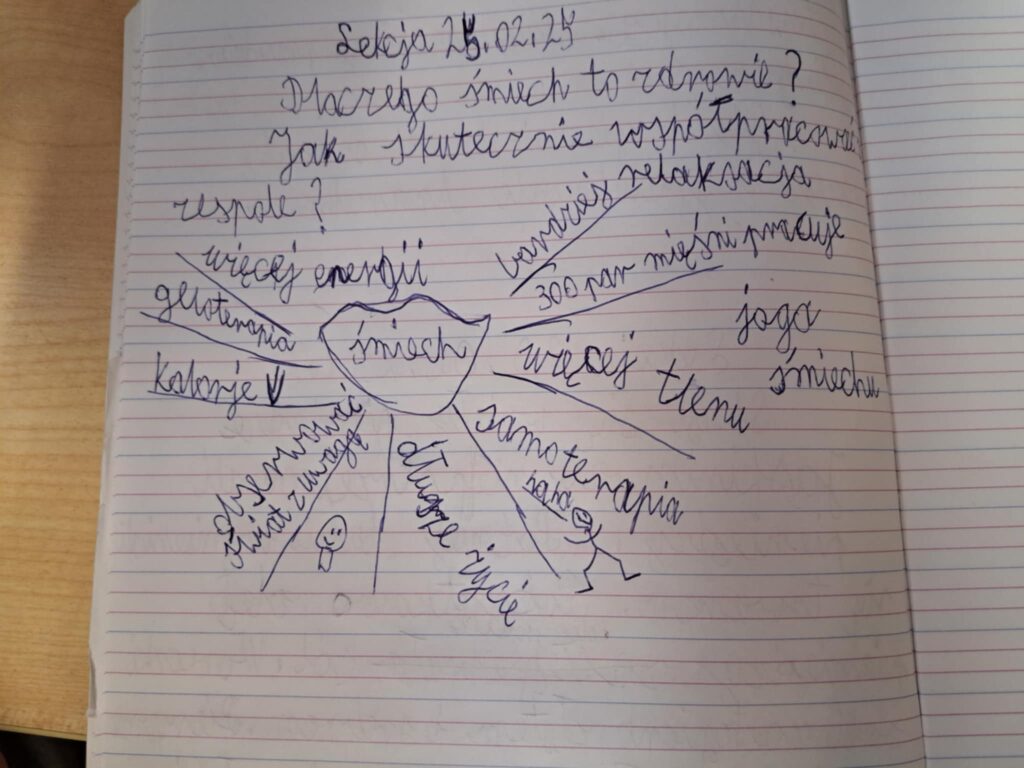 Lekcja 25.02.25
Dlaczego śmiech to zdrowie?
Jak skutecznie współpracować
zespole?
więcej energii
geloterapia
kalorie ↓
śmiech
bardziej relaksacja
300 par mięśni pracuje
więcej tlenu
joga
śmiechu
samoterapia
dłuższe życie
obserwować
świat z uwagą